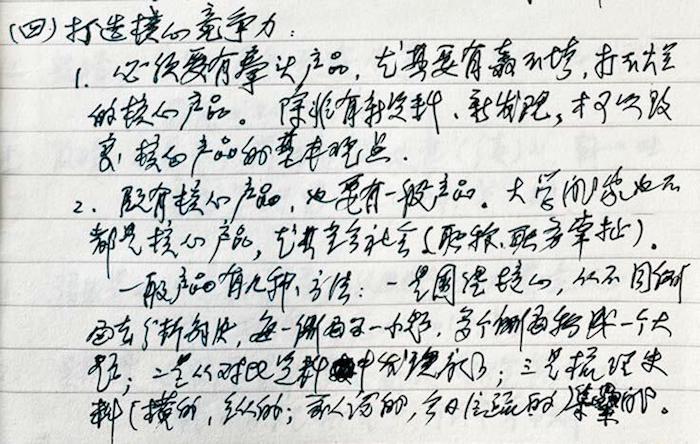 (四)打造核心竞争力:
1. 必须要有拳头产品,尤其要有轰不垮,打不烂
的核心产品。除非有新史料、新发现,才可以改
变核心产品的基本观点.
2. 既有核心产品,也要有一般产品。大学问家也不
都是核心产品,尤其在今社会(职称、职务牵扯)。
一般产品有几种方法:一是围绕核心,从不同侧
面去分析解决,每一侧面又一小题,多个侧面构成一个大
题;二是从对比史料中发现敏感;三是梳理史
料(横的,纵的;前人论的,今日位疏的)集的。